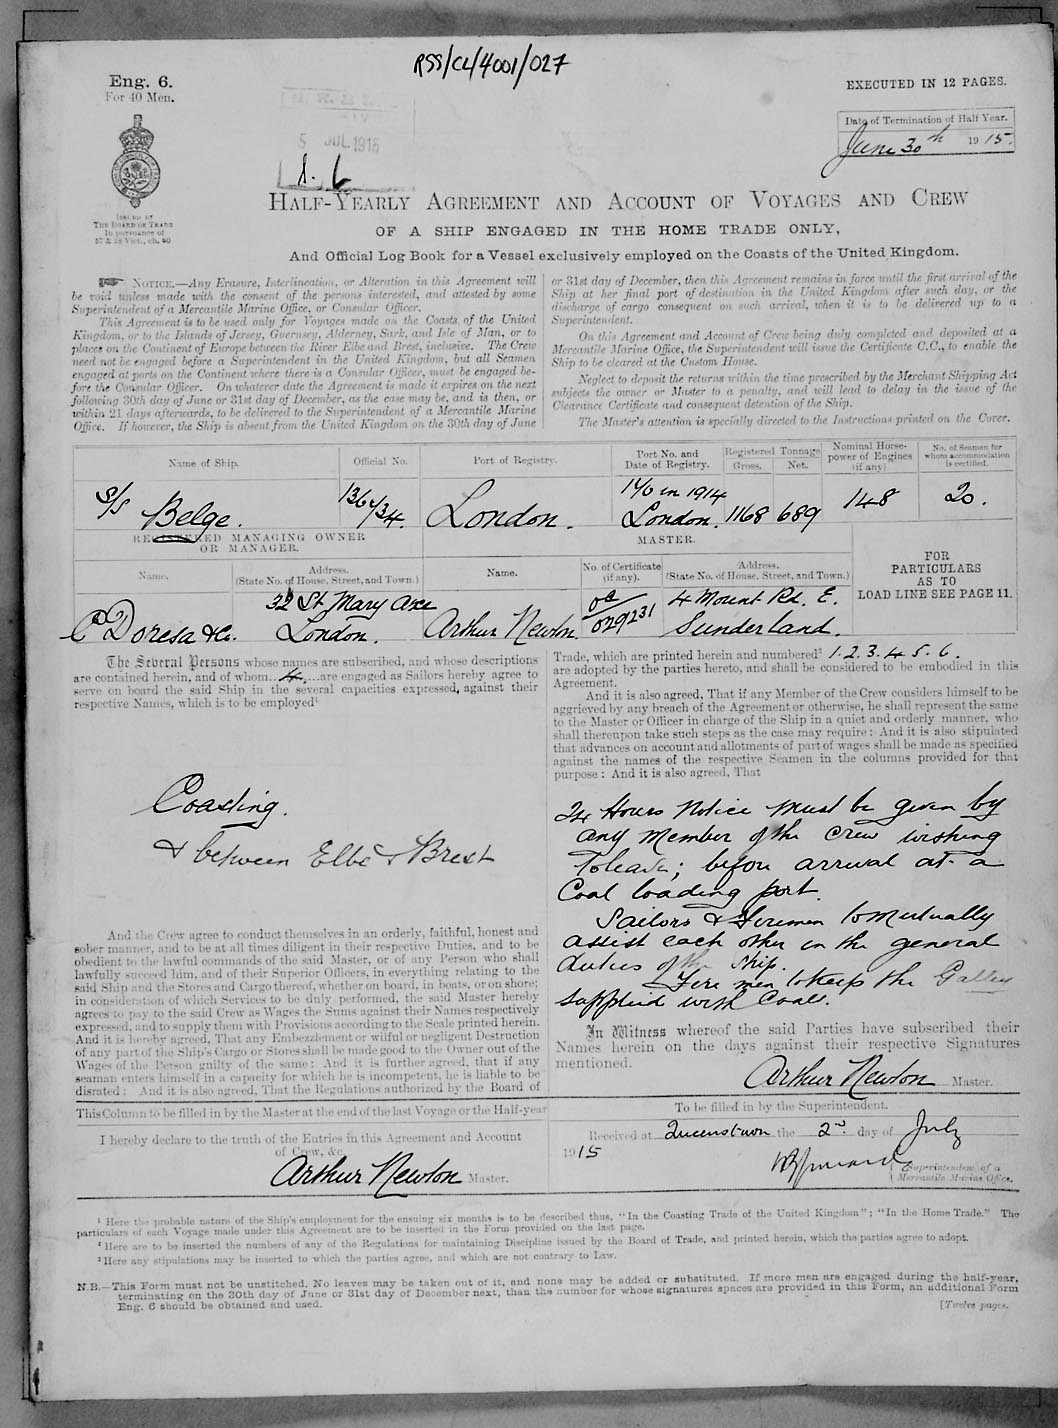 RSS/CL/4001/027
Eng. 6.
For 40 Men.
EXECUTED IN 12 PAGES.
Date of Termination of Half Year.
June 30th 1915.
5 JUL 1915
S. 6
ISSUED BY
THE BOARD OF TRADE
In pursuance of
57 & 58 Vict., ch. 60
HALF-YEARLY AGREEMENT AND ACCOUNT OF VOYAGES AND CREW
OF A SHIP ENGAGED IN THE HOME TRADE ONLY,
And Official Log Book for a Vessel exclusively employed on the Coasts of the United Kingdom.
NOTICE.—Any Erasure, Interlineation, or Alteration in this Agreement will
be void unless made with the consent of the persons interested, and attested by some
Superintendent of a Mercantile Marine Office, or Consular Officer.
This Agreement is to be used only for Voyages made on the Coasts of the United
Kingdom, or to the Islands of Jersey, Guernsey, Alderney, Sark, and Isle of Man, or to
places on the Continent of Europe between the River Elbe and Brest, inclusive. The Crew
need not be engaged before a Superintendent in the United Kingdom, but all Seamen
engaged at ports on the Continent where there is a Consular Officer, must be engaged be-
fore the Consular Officer. On whatever date the Agreement is made it expires on the next
following 30th day of June or 31st day of December, as the case may be, and is then, or
within 21 days afterwards, to be delivered to the Superintendent of a Mercantile Marine
Office. If however, the Ship is absent from the United Kingdom on the 30th day of June
or 31st day of December, then this Agreement remains in force until the first arrival of the
Ship at her final port of destination in the United Kingdom after such day, or the
discharge of cargo consequent on such arrival, when it is to be delivered up to a
Superintendent.
On this Agreement and Account of Crew being duly completed and deposited at a
Mercantile Marine Office, the Superintendent will issue the Certificate C.C., to enable the
Ship to be cleared at the Custom House.
Neglect to deposit the returns within the time prescribed by the Merchant Shipping Act
subjects the owner or Master to a penalty, and will lead to delay in the issue of the
Clearance Certificate and consequent detention of the Ship.
The Master's attention is specially directed to the Instructions printed on the Cover.
Name of Ship. Official No. Port of Registry. Port No. and Date of Registry. Registered Tonnage Gross. Net. Nominal Horse-power of Engines (if any) No. of Seamen for whom accommodation is certified.
S/S Belge. 136734. London. 140 in 1914 London. 1168 689 148 20.
REGISTERED MANAGING OWNER
OR MANAGER.
MASTER.
FOR
PARTICULARS
AS TO
LOAD LINE SEE PAGE 11.
Name. Address. (State No. of House, Street, and Town.) Name. No. of Certificate (if any). Address. (State No. of House, Street, and Town.)
32 St Mary Axe 4 Mount Rd. E.
C Doresa & Co. London. Arthur Newton. 029231 Sunderland.
The Several Persons whose names are subscribed, and whose descriptions
are contained herein, and of whom 4 are engaged as Sailors hereby agree to
serve on board the said Ship in the several capacities expressed, against their
respective Names, which is to be employed¹
Coasting.
& between Elbe & Brest
And the Crew agree to conduct themselves in an orderly, faithful, honest and
sober manner, and to be at all times diligent in their respective Duties, and to be
obedient to the lawful commands of the said Master, or of any Person who shall
lawfully succeed him, and of their Superior Officers, in everything relating to the
said Ship and the Stores and Cargo thereof, whether on board, in boats, or on shore;
in consideration of which Services to be duly performed, the said Master hereby
agrees to pay to the said Crew as Wages the Sums against their Names respectively
expressed, and to supply them with Provisions according to the Scale printed herein.
And it is hereby agreed, That any Embezzlement or wilful or negligent Destruction
of any part of the Ship's Cargo or Stores shall be made good to the Owner out of the
Wages of the Person guilty of the same: And it is further agreed, that if any
seaman enters himself in a capacity for which he is incompetent, he is liable to be
disrated: And it is also agreed, That the Regulations authorized by the Board of
Trade, which are printed herein and numbered² 1. 2. 3. 4 5. 6.
are adopted by the parties hereto, and shall be considered to be embodied in this
Agreement.
And it is also agreed, That if any Member of the Crew considers himself to be
aggrieved by any breach of the Agreement or otherwise, he shall represent the same
to the Master or Officer in charge of the Ship in a quiet and orderly manner, who
shall thereupon take such steps as the case may require: And it is also stipulated
that advances on account and allotments of part of wages shall be made as specified
against the names of the respective Seamen in the columns provided for that
purpose: And it is also agreed, That
24 Hours Notice must be given by
any member of the crew wishing
to leave; before arrival at a
Coal loading port.
Sailors & Firemen to mutually
assist each other in the general
duties of the Ship.
Fire men to keep the Galley
supplied with Coals.
In Witness whereof the said Parties have subscribed their
Names herein on the days against their respective Signatures
mentioned.
Arthur Newton Master.
This Column to be filled in by the Master at the end of the last Voyage or the Half-year
I hereby declare to the truth of the Entries in this Agreement and Account
of Crew, &c.
Arthur Newton Master.
To be filled in by the Superintendent.
Received at Queenstown the 2nd day of July
1915
Superintendent of a
Mercantile Marine Office.
¹ Here the probable nature of the Ship's employment for the ensuing six months is to be described thus, "In the Coasting Trade of the United Kingdom"; "In the Home Trade." The
particulars of each Voyage made under this Agreement are to be inserted in the Form provided on the last page.
² Here are to be inserted the numbers of any of the Regulations for maintaining Discipline issued by the Board of Trade, and printed herein, which the parties agree to adopt.
³ Here any stipulations may be inserted to which the parties agree, and which are not contrary to Law.
N.B.—This Form must not be unstitched. No leaves may be taken out of it, and none may be added or substituted. If more men are engaged during the half-year,
terminating on the 30th day of June or 31st day of December next, than the number for whose signatures spaces are provided in this Form, an additional Form
Eng. 6 should be obtained and used.
[Twelve pages.